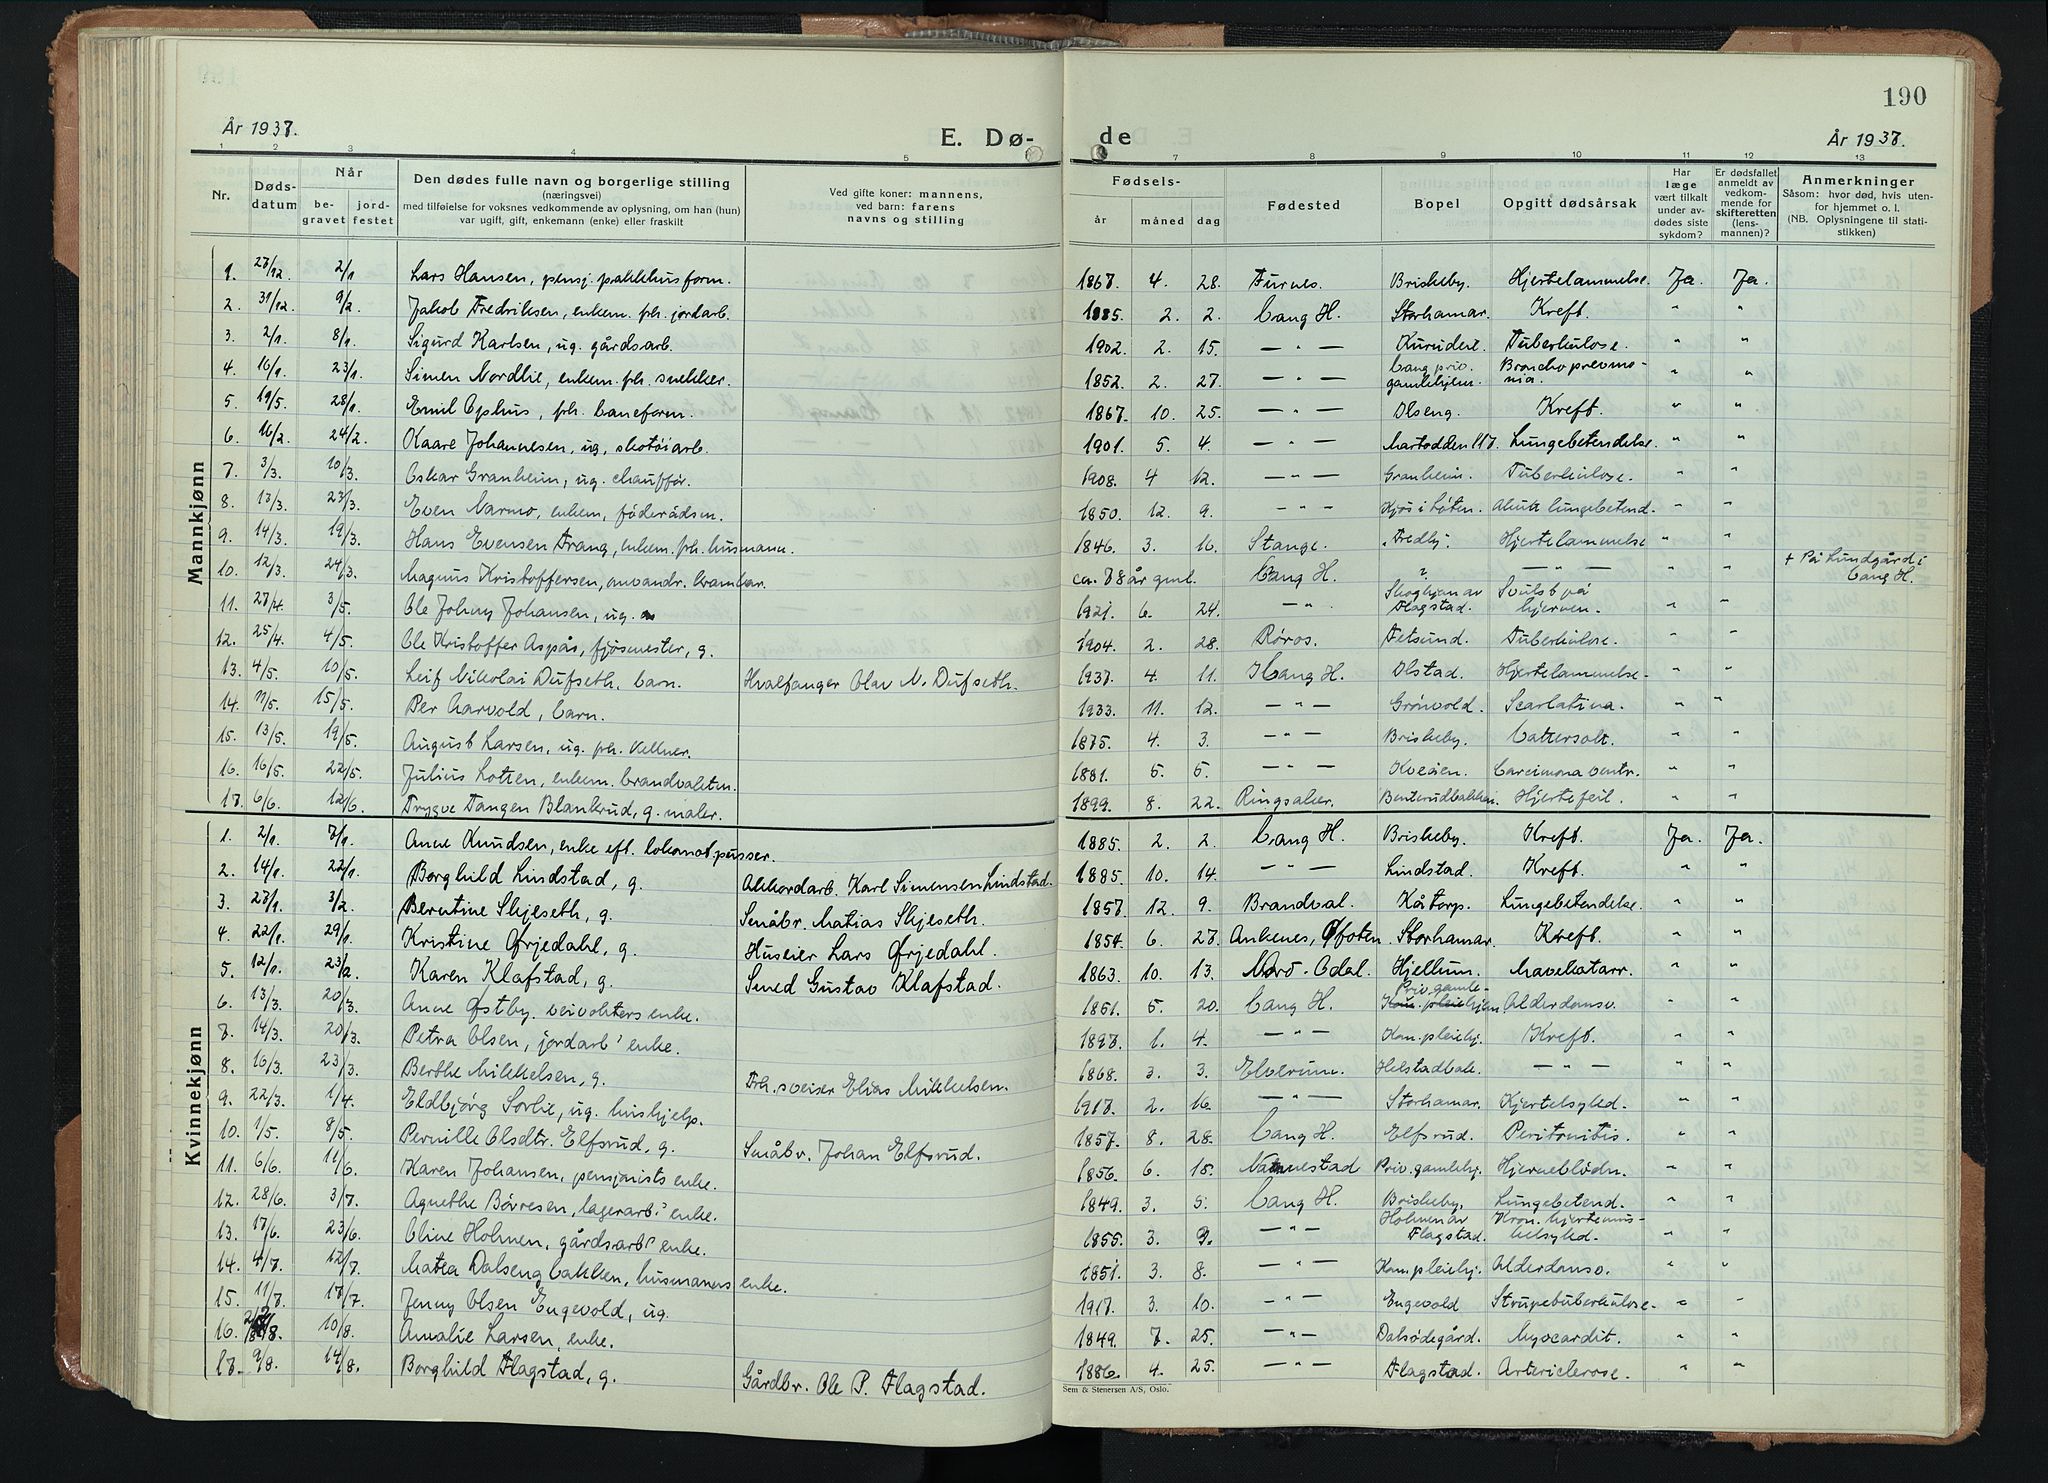 190
År 1937.
E. Dø-
de
År 1937.
1 2 3 4 5 7 8 9 10 11 12 13
Nr.
Døds-
datum
Når
be-
gravet
jord-
festet
Den dødes fulle navn og borgerlige stilling
(næringsvei)
med tilføielse for voksnes vedkommende av oplysning, om han (hun)
var ugift, gift, enkemann (enke) eller fraskilt
Ved gifte koner: mannens,
ved barn: farens
navns og stilling
Fødsels-
år måned dag
Fødested
Bopel
Opgitt dødsårsak
Har
læge
vært tilkalt
under av-
dødes siste
sykdom?
Er dødsfallet
anmeldt av
vedkom-
mende for
skifteretten
(lens-
mannen)?
Anmerkninger
Såsom: hvor død, hvis uten-
for hjemmet o. l.
(NB. Oplysningene til stati-
stikken)
Mannkjønn
1. 27/12. 2/1 Lars Hansen, pensj. pakkhusform. 1867. 4. 28. Furnes. Briskeby. Hjertelammelse. Ja. Ja.
2. 31/12. 9/2. Jakob Fredriksen, enkem. fh. jordarb. 1885. 2. 2. Vang H. Storhamar. Kreft. " "
3. 2/1. 8/1. Sigurd Karlsen, ug. gårdsarb. 1902. 2. 15. — " — Tuberkulose. " "
4. 16/1. 23/1. Simen Nordlie, enkem. fh. snekker. 1852. 2. 27. — " — Vang priv. gamlehjem. Bronchopnevmo-
nia. " "
5. 19/5. 28/1. Emil Ophus, fh. baneform. 1867. 10. 25. — " — Olseng. Kreft. " "
6. 16/2. 24/2. Kaare Johannesen, ug, skotøiarb. 1901. 5. 4. — " — Martodden 117. Lungebetendelse. " "
7. 3/3. 10/3. Oskar Granheim, ug. chauffør. 1908. 4 12. — " — Granheim. Tuberkulose. " "
8. 13/3. 23/3. Even Narmo, enkem, føderådsm. 1850. 12. 9. — " — Kjos i Løten. Akutt lungebetend. " "
9. 14/3. 19/3. Hans Evensen Frang, enkem. fh. husmann. 1846. 3. 16. Stange. Fredly. Hjertelammelse " "
10. 12/3. 24/3. Magnus Kristoffersen, omvandr. ca. 78 år gml. Vang H. ? — " — " " + På Lundgård i
Vang H.
11. 27/4. 3/5. Ole Johny Johansen, ug. 1921. 6. 24. — " — Skoghjem av
Flagstad. Svulst på
hjernen. " "
12. 25/4. 4/5. Ole Kristoffer Aspås, fjøsmester, g. 1904. 2. 28. Røros. Fetsund. Tuberkulose. " "
13. 4/5. 10/5. Leif Nikolai Dufseth, barn. Hvalfanger Olav N. Dufseth. 1937. 4. 11. Vang H. Olstad. Hjertelammelse. " "
14. 11/5. 15/5. Per Aarvold, barn. 1933. 11. 12. — " — Grønvold. Scarlatina. " "
15. 13/5. 19/5. August Larsen, ug. fh. kellner. 1875. 4. 3. — " — Briskeby. Vattersott. " "
16. 16/5. 22/5. Julius Lotten, enkem. brandvaktm. 1881. 5. 5. — " — Kveåen. Carcimona ventr. " "
17. 6/6. 12/6. Trygve Tangen Blankrud, g. maler. 1899. 8. 22. Ringsaker. Benterudbakken. Hjertefeil. " "
Kvinnekjønn
1. 2/1. 7/1. Anne Knudsen, enke eft. lokomot.pusser. 1885. 2. 2. Vang H. Briskeby. Kreft. Ja. Ja.
2. 14/1. 22/1. Borghild Lindstad, g. Akkordarb. Karl Simensen Lindstad. 1885. 10. 14. — " — Lindstad. Kreft. " "
3. 27/1. 3/2. Berntine Skjeseth, g. Småbr. Matias Skjeseth. 1857. 12. 9. Brandval. Kåtorp. Lungebetendelse. " "
4. 22/1. 29/1. Kristine Ørjedahl, g. Huseier Lars Ørjedahl. 1854. 6. 27. Ankenes, Ofoten. Storhamar. Kreft. " "
5. 12/1. 23/2. Karen Klafstad, g. Smed Gustav Klafstad. 1863. 10. 13. Nord-Odal. Hjellum. Mavekatarr. " "
6. 13/3. 20/3. Anne Østby, veivokters enke. 1851. 5. 20. Vang H. Priv. gamle-
Kom. pleiehjem Alderdomsv. " "
7. 14/3. 20/3. Petra Olsen, jordarb' enke. 1. 4. — " — Kom. pleiehj. Kreft. " "
8. 16/3. 23/3. Berthe Mikkelsen, g. Fh. sveiser Elias Mikkelsen. 1868. 3. 3. Elverum. Helstadbak. — " — " "
9. 22/3. 1/4. Eldbjørg Sorlie, ug. hushjelp. 1917. 2. 16. — " — Storhamar. Kjertelsykd. " "
10. 1/5. 8/5. Pernille Olsdtr. Elfsrud, g. Småbr. Johan Elfsrud. 1857. 8. 28. Vang H. Elfsrud. Peritonitis. " "
11. 6/6. 11/6. Karen Johansen, pensjonists enke. 1856. 6. 15. Nannestad Priv. gamlehj. Hjerneblødn. " "
12. 28/6. 3/7. Agnethe Bövresen, lagerarb.' enke. 1849. 3. 5. Vang H. Briskeby. Lungebetend. " "
13. 17/6. 23/6. Oline Holmen, gårdsarb' enke. 1855. 3. 9. — " — Holmen av
Flagstad. Kron. hjertemus-
kelsykd. " "
14. 4/7. 12/7. Matea Dalseng bakken, husmanns enke. 1851. 3. 8. — " — Kom. pleiehj. Alderdomsv. " "
15. 11/7. 17/7. Jenny Olsen Engevold, ug. 1917. 3. 10. — " — Engevold Strupetuberkulose. " "
16. 10/8. Amalie Larsen, enke. 1849. 7. 25. — " — Dalsødegård. Myocardit. " "
17. 9/8. 14/8. Borghild Flagstad, g. Gårdbr. Ole P. Flagstad. 1886. 4. 25. — " — Flagstad. Artericlerose. " "
Sem & Stenersen A/S, Oslo.